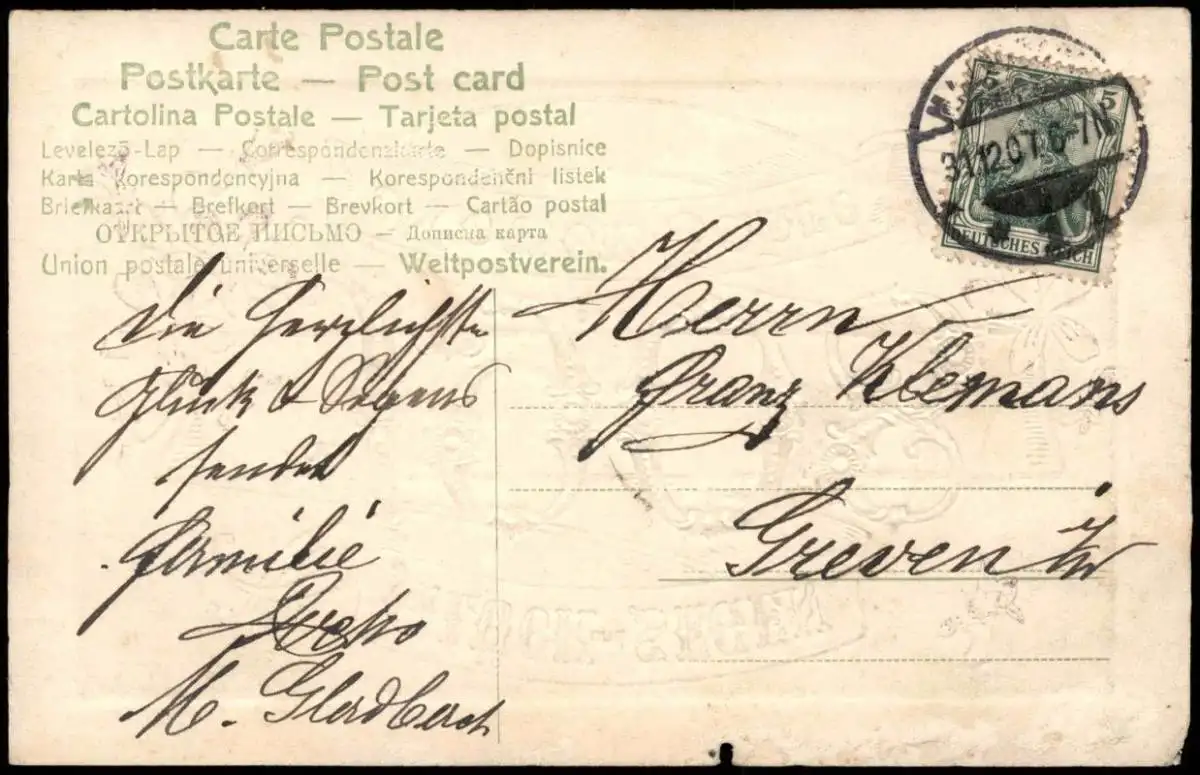 Carte Postale
Postkarte — Post card
Cartolina Postale — Tarjeta postal
Levelező-Lap — Correspondenzkarte — Dopisnice
Karta korespondencyjna — Korespondenční listek
Briefkaart — Brefkort — Brevkort — Cartão postal
ОТКРЫТОЕ ПИСЬМО — Дописна карта
Union postale universelle — Weltpostverein.
5 5
31.12.07. 6-7N
DEUTSCHES REICH
Die herzlichste
Glück & Segens
sendet
Familie
M. Gladbach
Herrn
Franz Klemans
Greven